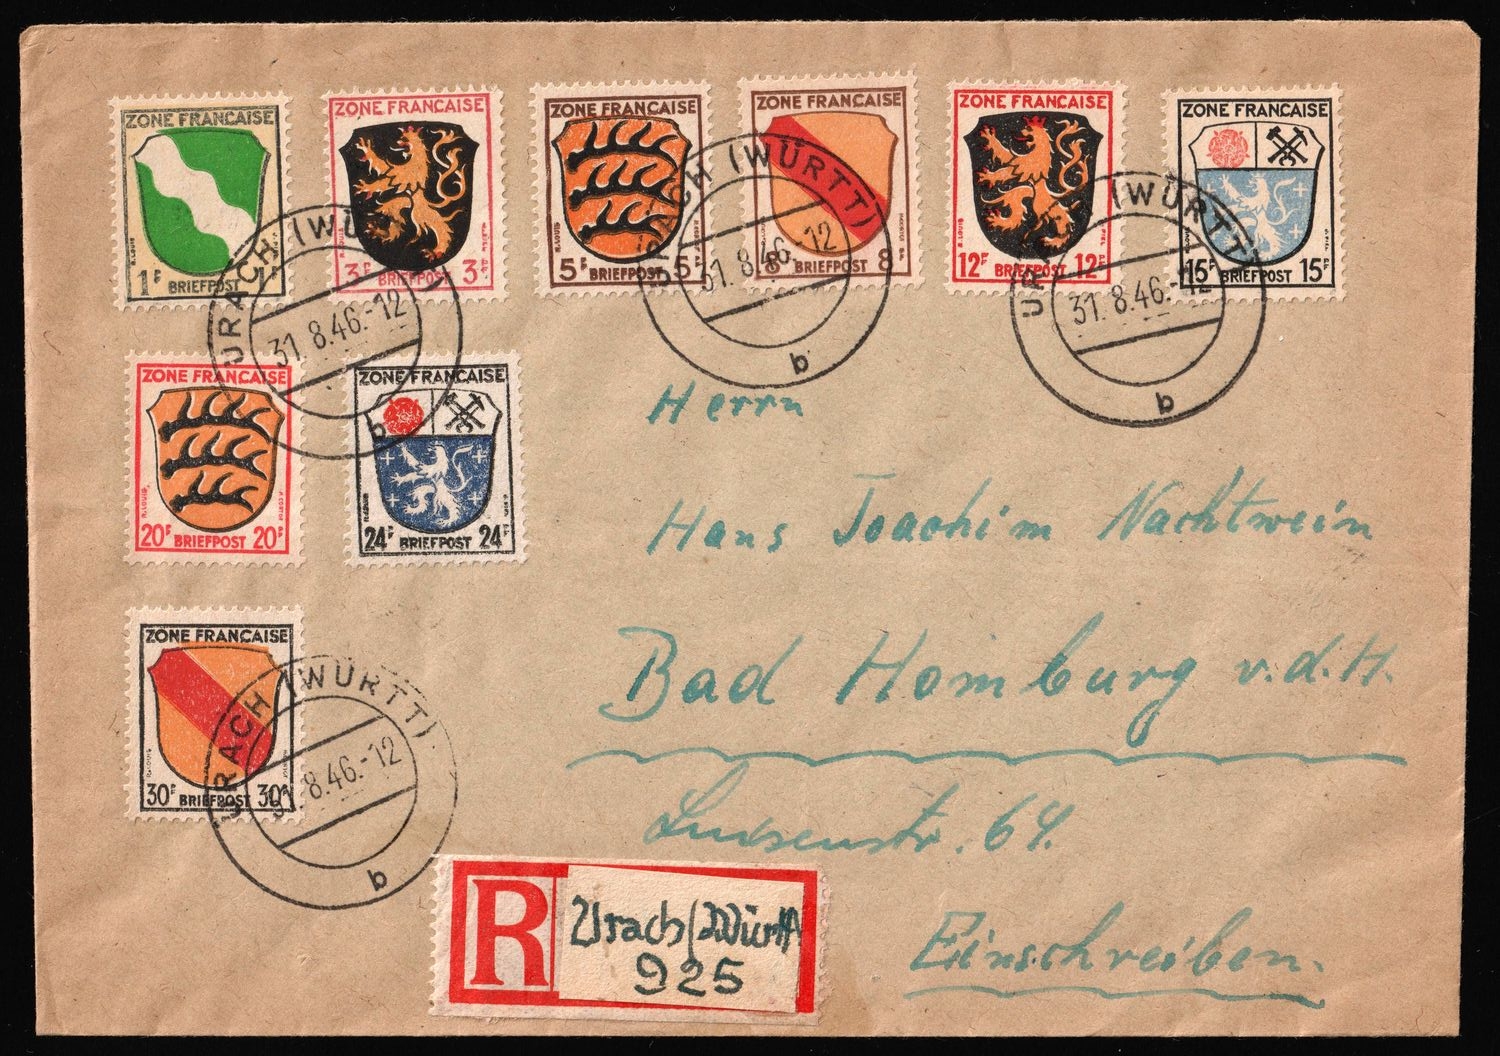 ZONE FRANÇAISE
1F BRIEFPOST
ZONE FRANÇAISE
3F BRIEFPOST 3F
ZONE FRANÇAISE
5F BRIEFPOST 5F
ZONE FRANÇAISE
8F BRIEFPOST 8
ZONE FRANÇAISE
12F BRIEFPOST 12F
ZONE FRANÇAISE
15F BRIEFPOST 15F
URACH (WÜRTT)
31.8.46.-12
b
URACH (WÜRTT)
31.8.46.-12
b
URACH (WÜRTT)
31.8.46.-12
b
ZONE FRANÇAISE
20F BRIEFPOST 20F
ZONE FRANÇAISE
24F BRIEFPOST 24F
ZONE FRANÇAISE
30F BRIEFPOST 30F
URACH (WÜRTT)
31.8.46.-12
b
Herrn
Hans Joachim Nachtwein
Bad Homburg v.d.H.
Luisenstr. 64.
Einschreiben.
R
Urach (Württ)
925